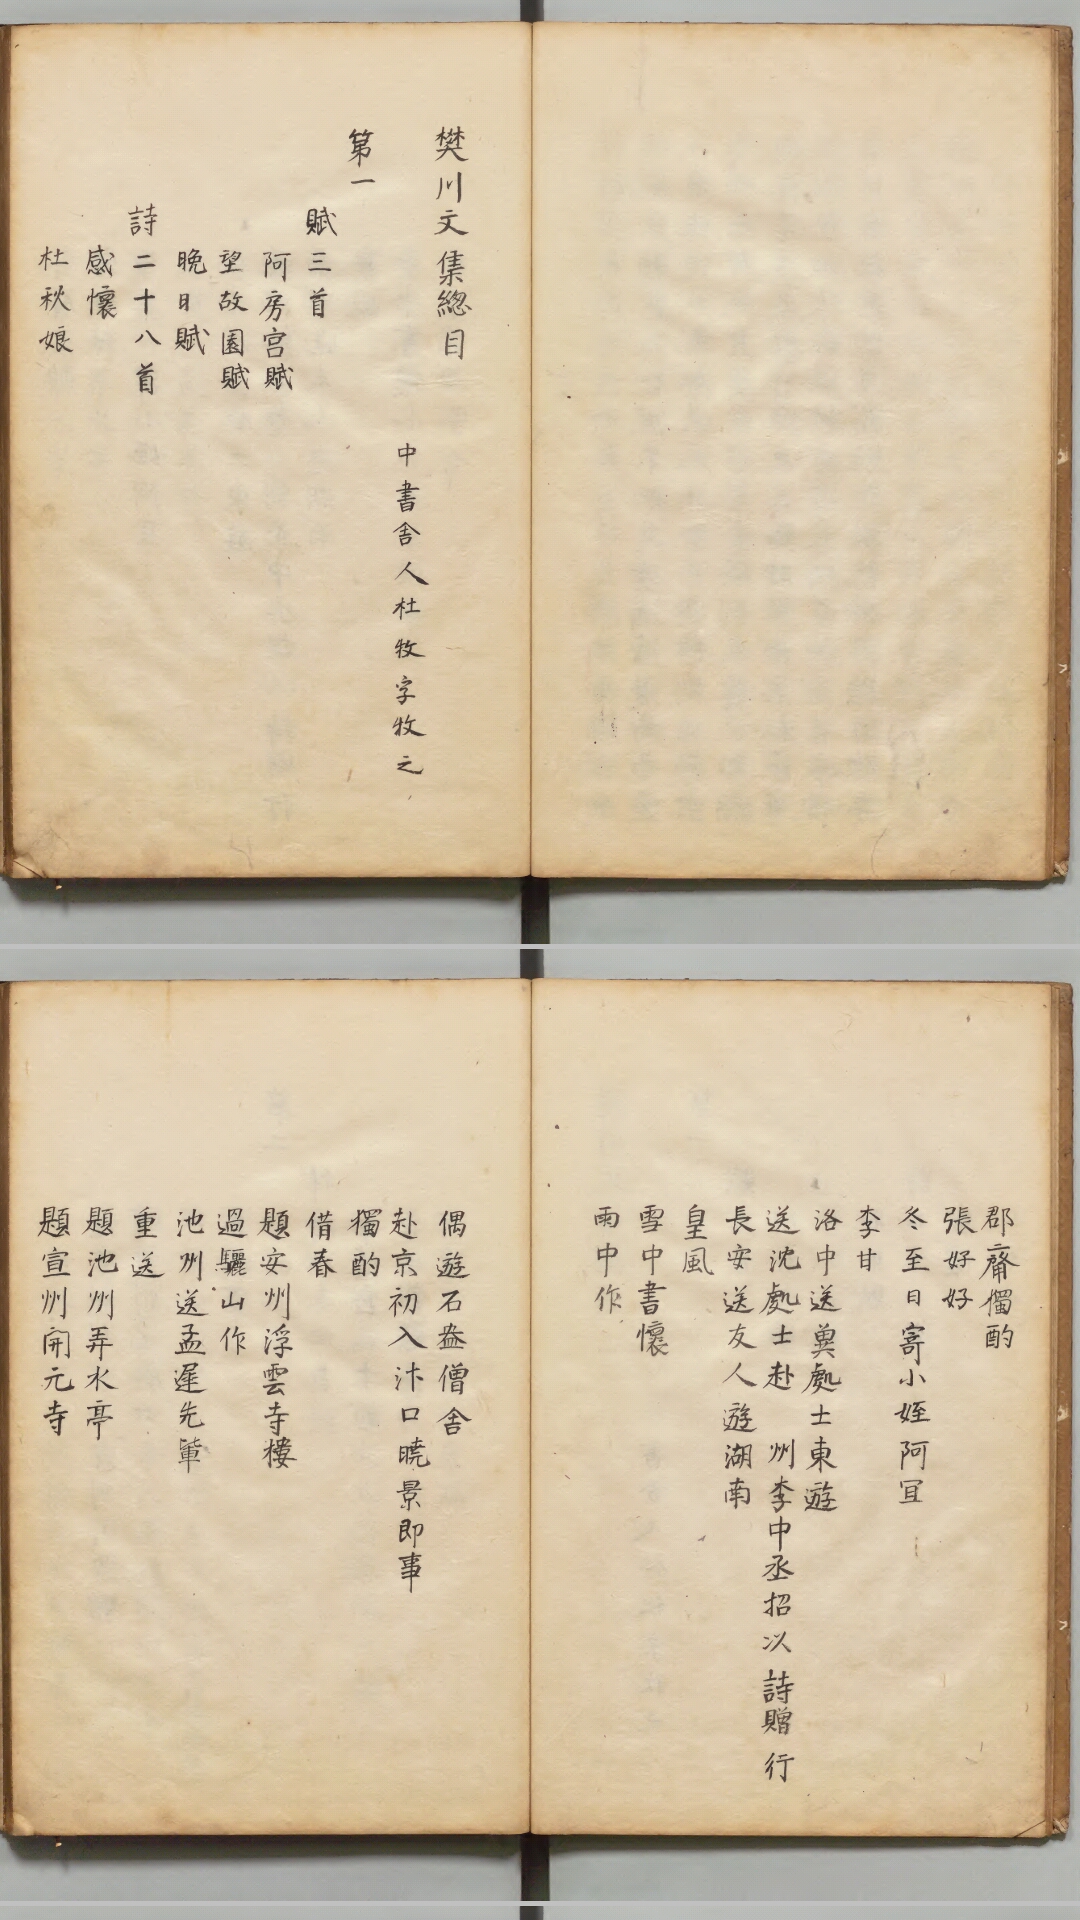 樊川文集總目
中書舍人杜牧字牧之
第一
賦三首
阿房宮賦
望故園賦
晚日賦
詩二十八首
感懷
杜秋娘
郡齋獨酌
張好好
冬至日寄小姪阿冝
李甘
洛中送冀處士東遊
送沈處士赴 州李中丞招以詩贈行
長安送友人遊湖南
皇風
雪中書懷
雨中作
偶遊石盎僧舍
赴京初入汴口曉景即事
獨酌
借春
題安州浮雲寺樓
過驪山作
池州送孟遲先輩
重送
題池州弄水亭
題宣州開元寺